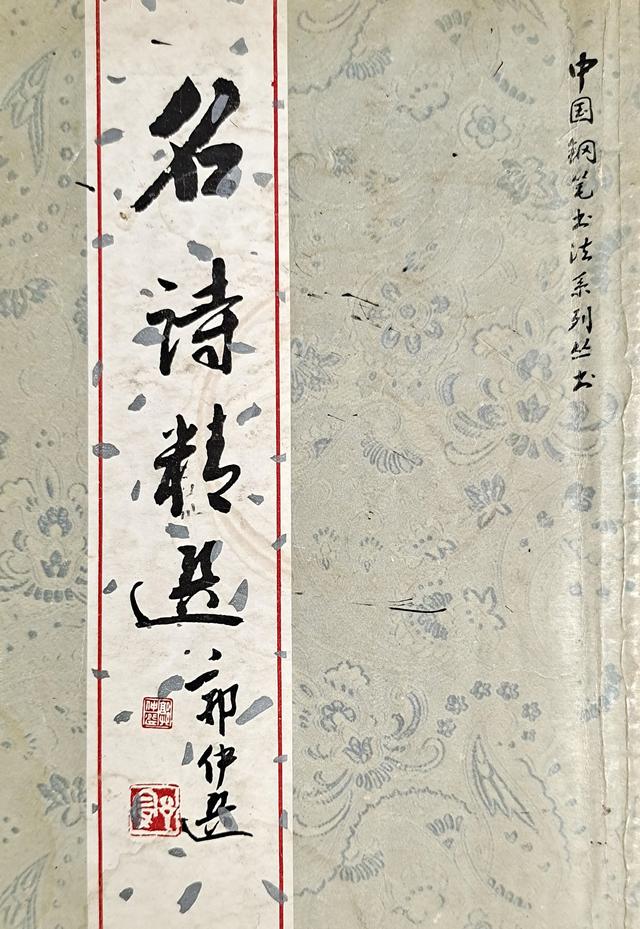 中国钢笔书法系列丛书
名诗精選
郭仲選